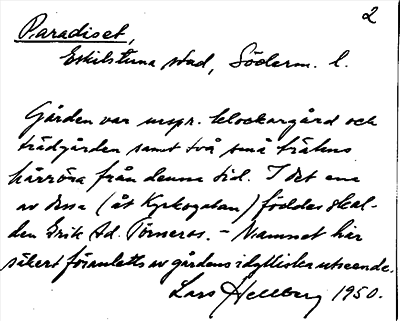 2
Paradiset,
Eskilstuna stad, Söderm. l.
Gården var urspr. klockargård och
trädgården samt två små trähus
härröra från denna tid. I det ena
av dessa (åt Kyrkogatan) föddes skal-
den Erik Ad. Törneros. – Namnet har
säkert föranletts av gårdens idylliska utseende.
Lars Hellberg 1950.